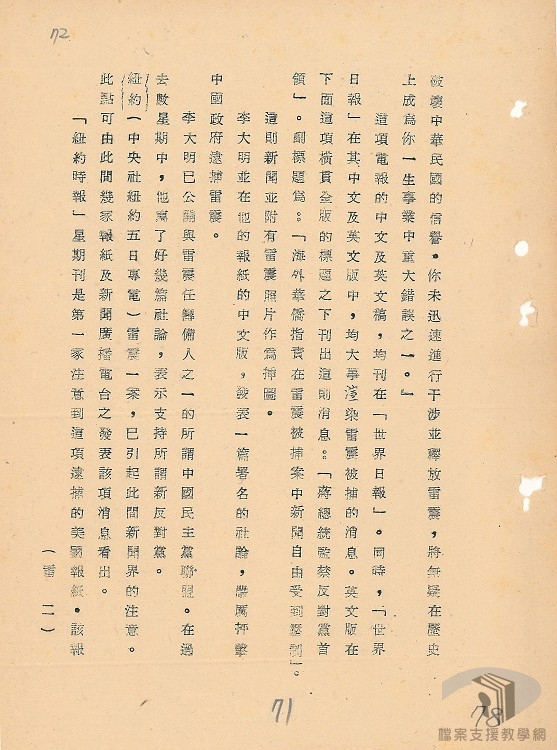 72
破壞中華民國的信譽。你未迅速進行干涉並釋放雷震，將無疑在歷史
上成為你一生事業中重大錯誤之一。』
這項電報的中文及英文稿，均刊在「世界日報」。同時，「世界
日報」在其中文及英文版中，均大事渲染雷震被捕的消息。英文版在
下面這項橫貫全版的標題之下刊出這則消息：「蔣總統監禁反對黨首
領」。副標題為：「海外華僑指責在雷震被捕案中新聞自由受到壓制」。
這則新聞並附有雷震照片作為插圖。
李大明並在他的報紙的中文版，發表一篇署名的社論，嚴厲抨擊
中國政府逮捕雷震。
李大明已公開與雷震任籌備人之一的所謂中國民主黨聯盟。在過
去數星期中，他寫了好幾篇社論，表示支持所謂新反對黨。
紐約（中央社紐約五日專電）雷震一案，已引起此間新聞界的注意。
此點可由此間幾家報紙及新聞廣播電台之發表該項消息看出。
「紐約時報」星期刊是第一家注意到這項逮捕的美國報紙。該報
（雷 二）
71
78
檔案支援教學網